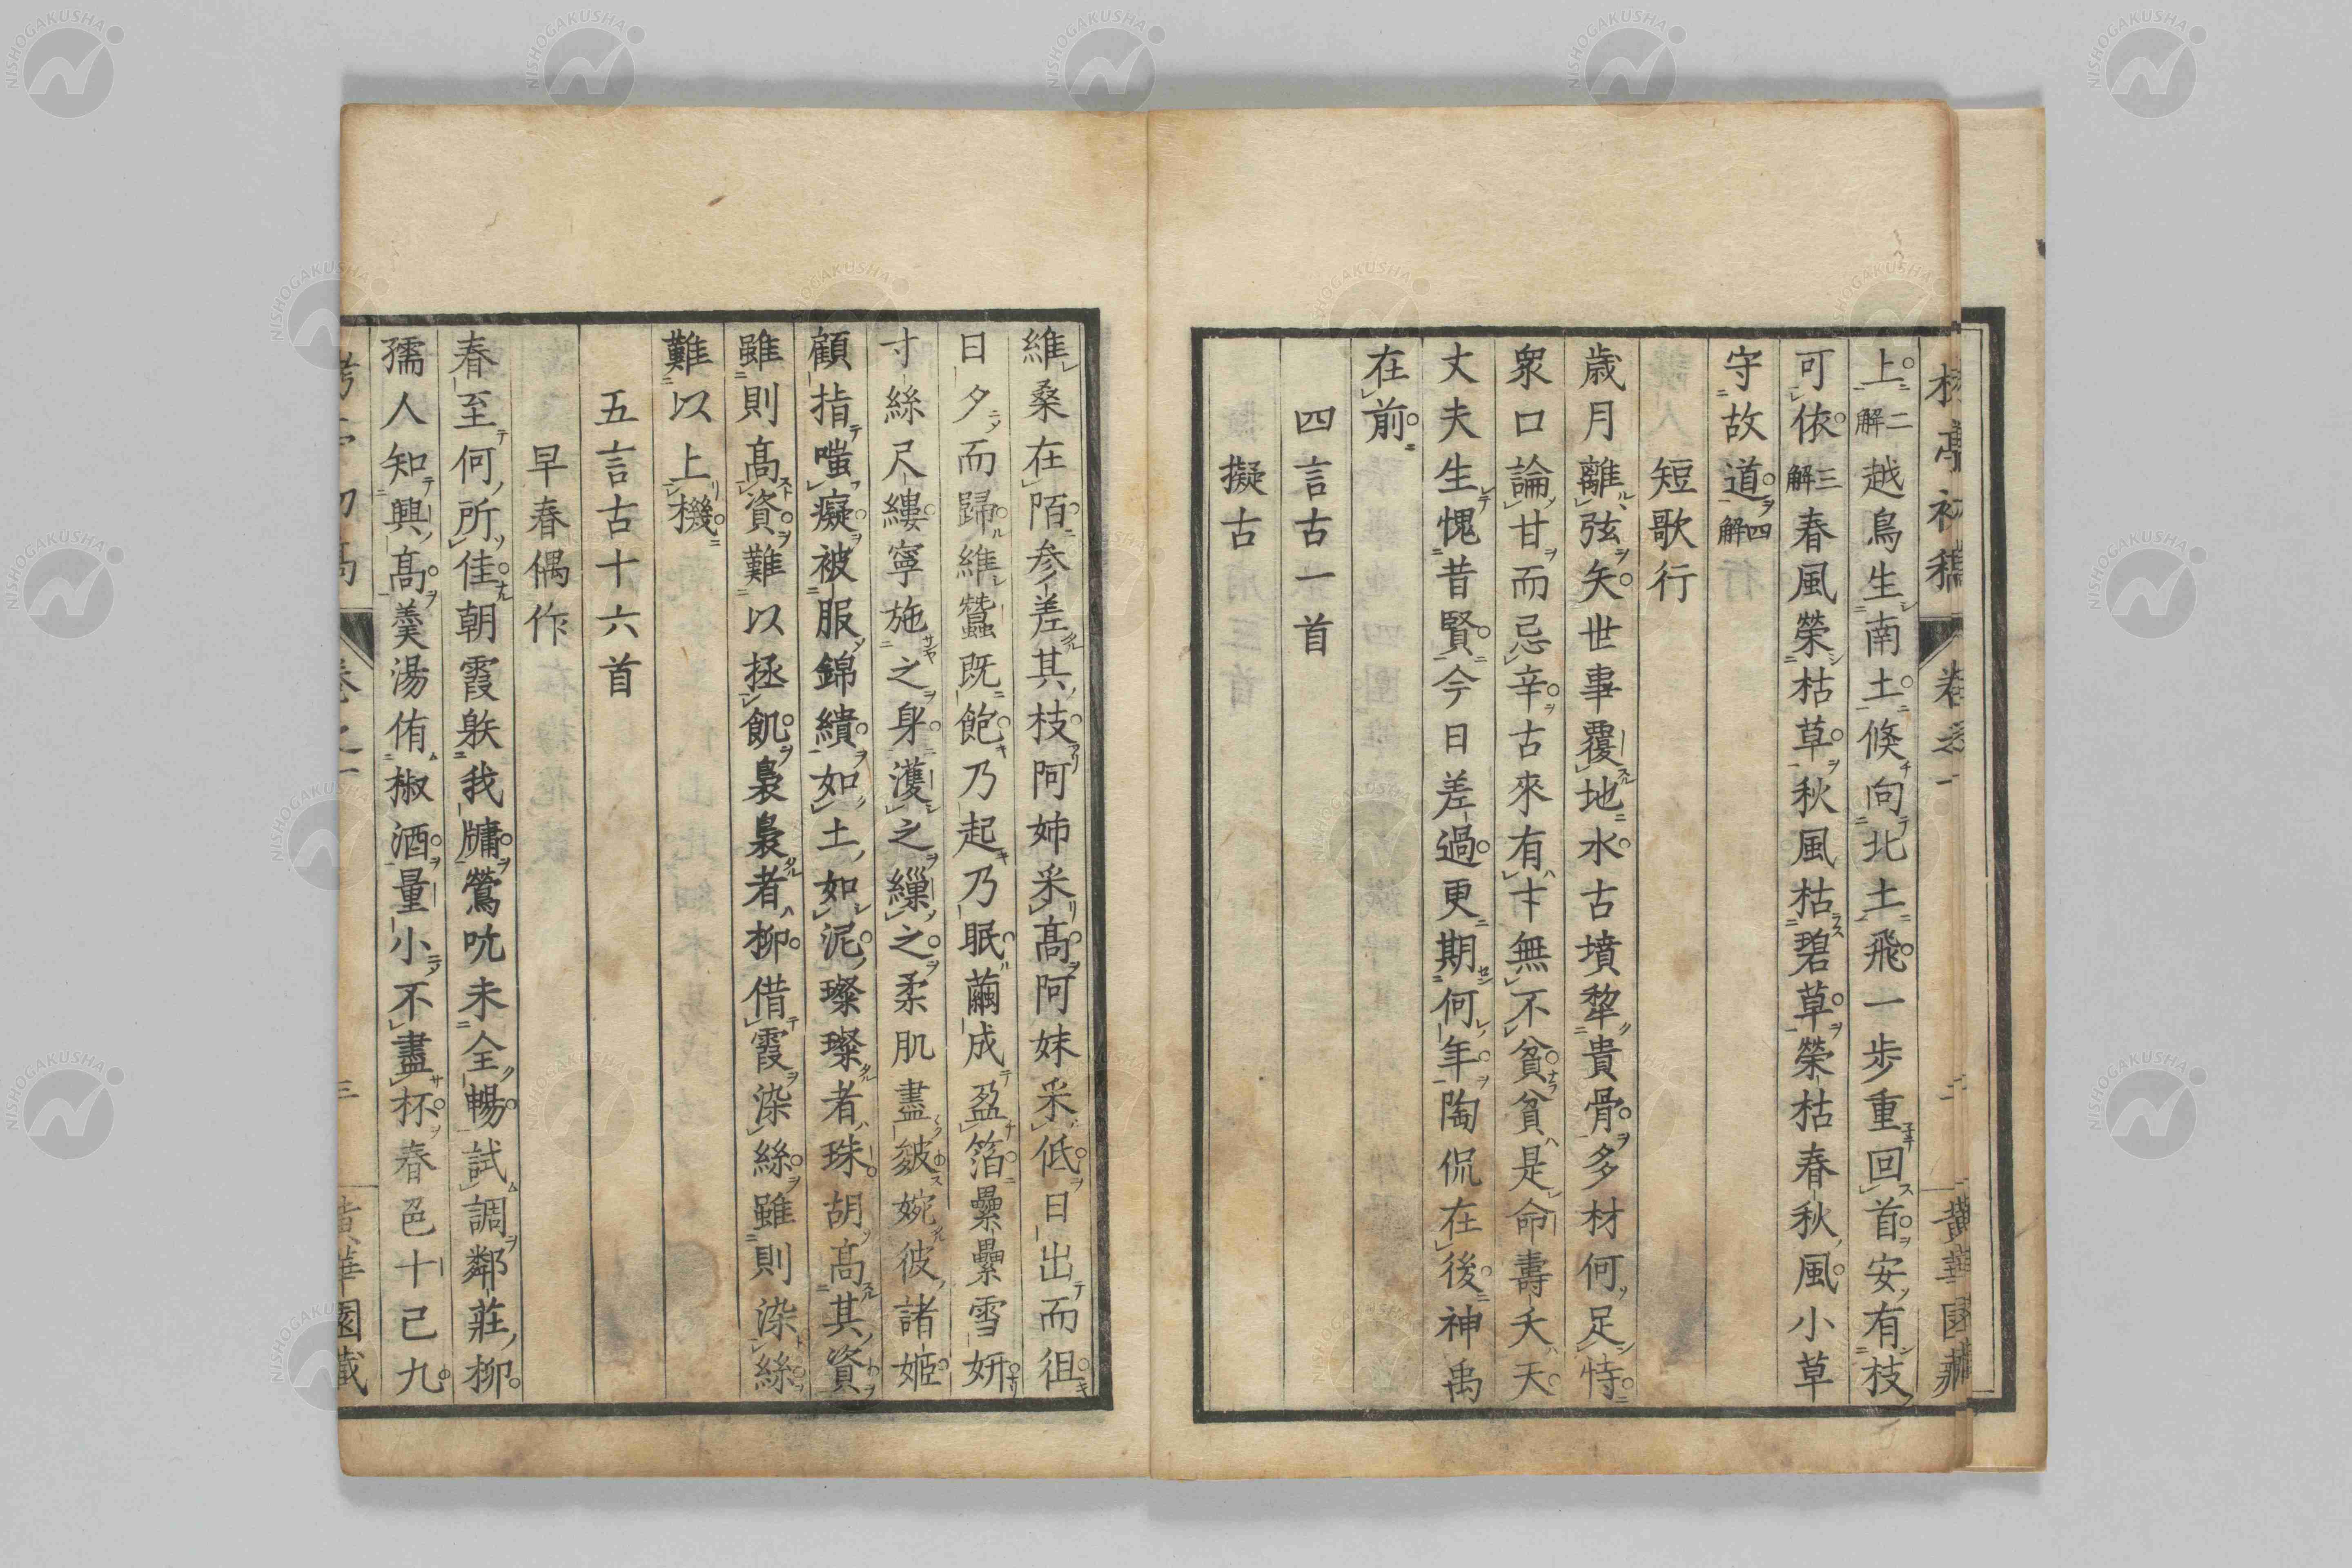 上二解越鳥生南土倏向北土飛一歩重回首安有枝
可依三解春風榮枯草秋風枯碧草榮枯春秋風小草
守故道四解
短歌行
歳月離弦矢世事覆地水古墳犂貴骨多材何足恃
衆口論甘而忌辛古來有才無不貧貧是命壽夭天
丈夫生愧昔賢今日差過更期何年陶侃在後神禹
在前
四言古一首
擬古
維桑在陌参差其枝阿姉采高阿妹采低日出而徂
日夕而歸維蠶既飽乃起乃眠繭成盈箔纍纍雪妍
寸絲尺縷寧施之身濩之繅之柔肌盡皴婉彼諸姬
顧指嗤癡被服錦繢如土如泥璨璨者珠胡高其資
雖則高資難以拯飢裊裊者柳借霞染絲雖則染絲
難以上機
五言古十六首
早春偶作
春至何所佳朝霞映我牗鶯吭未全暢試調鄰莊柳
孺人知興高羹湯侑椒酒量小不盡杯春色十已九
卷之一
三
黄華園藏